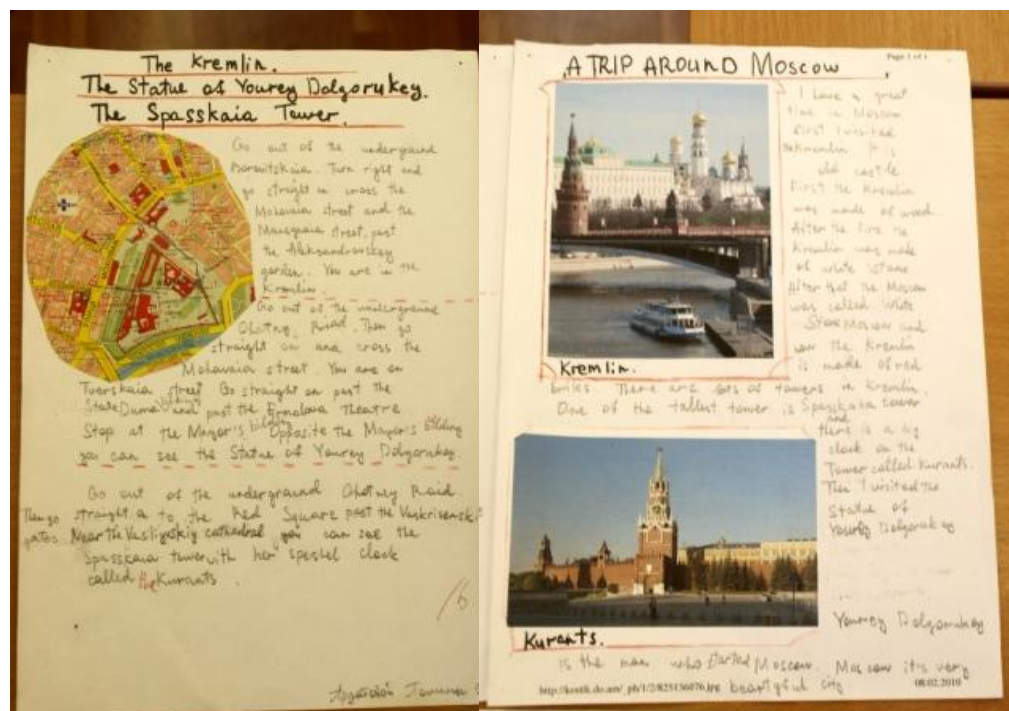 The Kremlin.
The Statue of Yourey Dolgorukey.
The Spasskaia Tower.
Go out of the underground
Borovitskaia. Turn right and
go straight on cross the
Mohavaia street and the
street, past
the Aleksandrovskey
garden. You are in the
Kremlin.
Go out of the underground
Ohotney Raid. Then go
straight on and cross the
Mohavaia street. You are on
Tverskaia street Go straight on past the
State Duma bilding and past the Ermolova Theatre
Stop at the Mayor's bilding Opposite the Mayor's bilding
you can see the Statue of Yourey Dolgorukey.
Go out of the underground Ohotney Raid.
Then go straight on to the Red Square past the Vaskrisensk
gates. Near the Vasliyevskiy cathedral you can see the
Spasskaia tower with her speshel clock
called the Kurants.
A TRIP AROUND MOSCOW
Page 1 of 1
I have a great
time in Moscow
First I visited
Kremlin It is
old castle
First the Kremlin
was made of wood.
After the fire the
Kremlin was made
of white stone
After that the Moscow
was called White
Stone Moscow and
now the Kremlin
is made of red
Kremlin.
briks There are lots of towers in Kremlin.
One of the tallest tower is Spasskaia tower
and there is a big
clock on the
Tower called Kurants.
Then I visited the
Statue of
Yourey Dolgorukey
Yourey Dolgorukey
Kurants.
is the man who started Moscow. Moscow it's very
beautyful city
08.02.2010